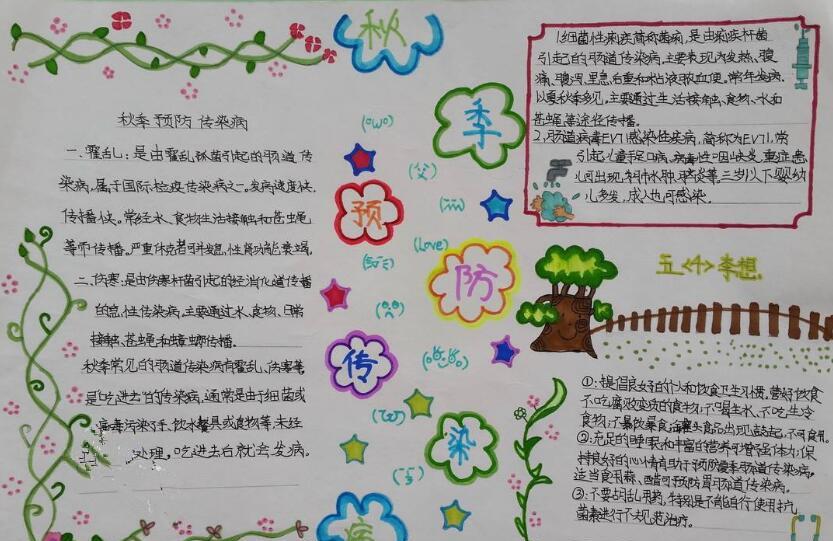 秋季预防传染病
秋季预防传染病
一、霍乱:是由霍乱弧菌引起的肠道传
染病,属于国际检疫传染病之一。发病速度快.
传播快。常经水、食物生活接触和苍蝇
等而传播。严重休克者可并发急性肾功能衰竭。
二、伤寒:是由伤寒杆菌引起的经消化道传播
的急性传染病,主要通过水、食物、日常
接触、苍蝇和蟑螂传播.
秋季常见的肠道传染病有霍乱、伤寒等
是"吃进去"的传染病,通常是由于细菌或
病毒污染了手、饮水餐具或食物等,未经
处理,吃进去后就会发病。
(父)
(Love)
1.细菌性痢疾简称菌痢,是由痢疾杆菌
引起的肠道传染病,主要表现为发热、腹
痛、腹泻、里急后重和粘液脓血便。常年发病,
以夏秋季多见。主要通过生活接触、食物、水和
苍蝇等途径传播.
2.肠道病毒EV71感染性疾病,简称为EV71,常
引起儿童手足口病、病毒性咽峡炎,重症患
儿可出现肺水肿、脑炎等,三岁以下婴幼
儿多发,成人也可感染.
五<4>李想
①:提倡良好的个人和饮食卫生习惯。营好饮食
不吃腐败变质的食物,不喝生水、不吃生冷
食物;不暴饮暴食,食品出现鼓起,不可食用.
②:充足的睡眠和丰富的营养可增强体力,保
持良好的心情有助于预防夏季肠道传染病。
适当食用蒜、醋可预防胃肠道传染病。
③:不要胡乱用药,特别是不能自行使用抗
菌素进行不规范治疗。